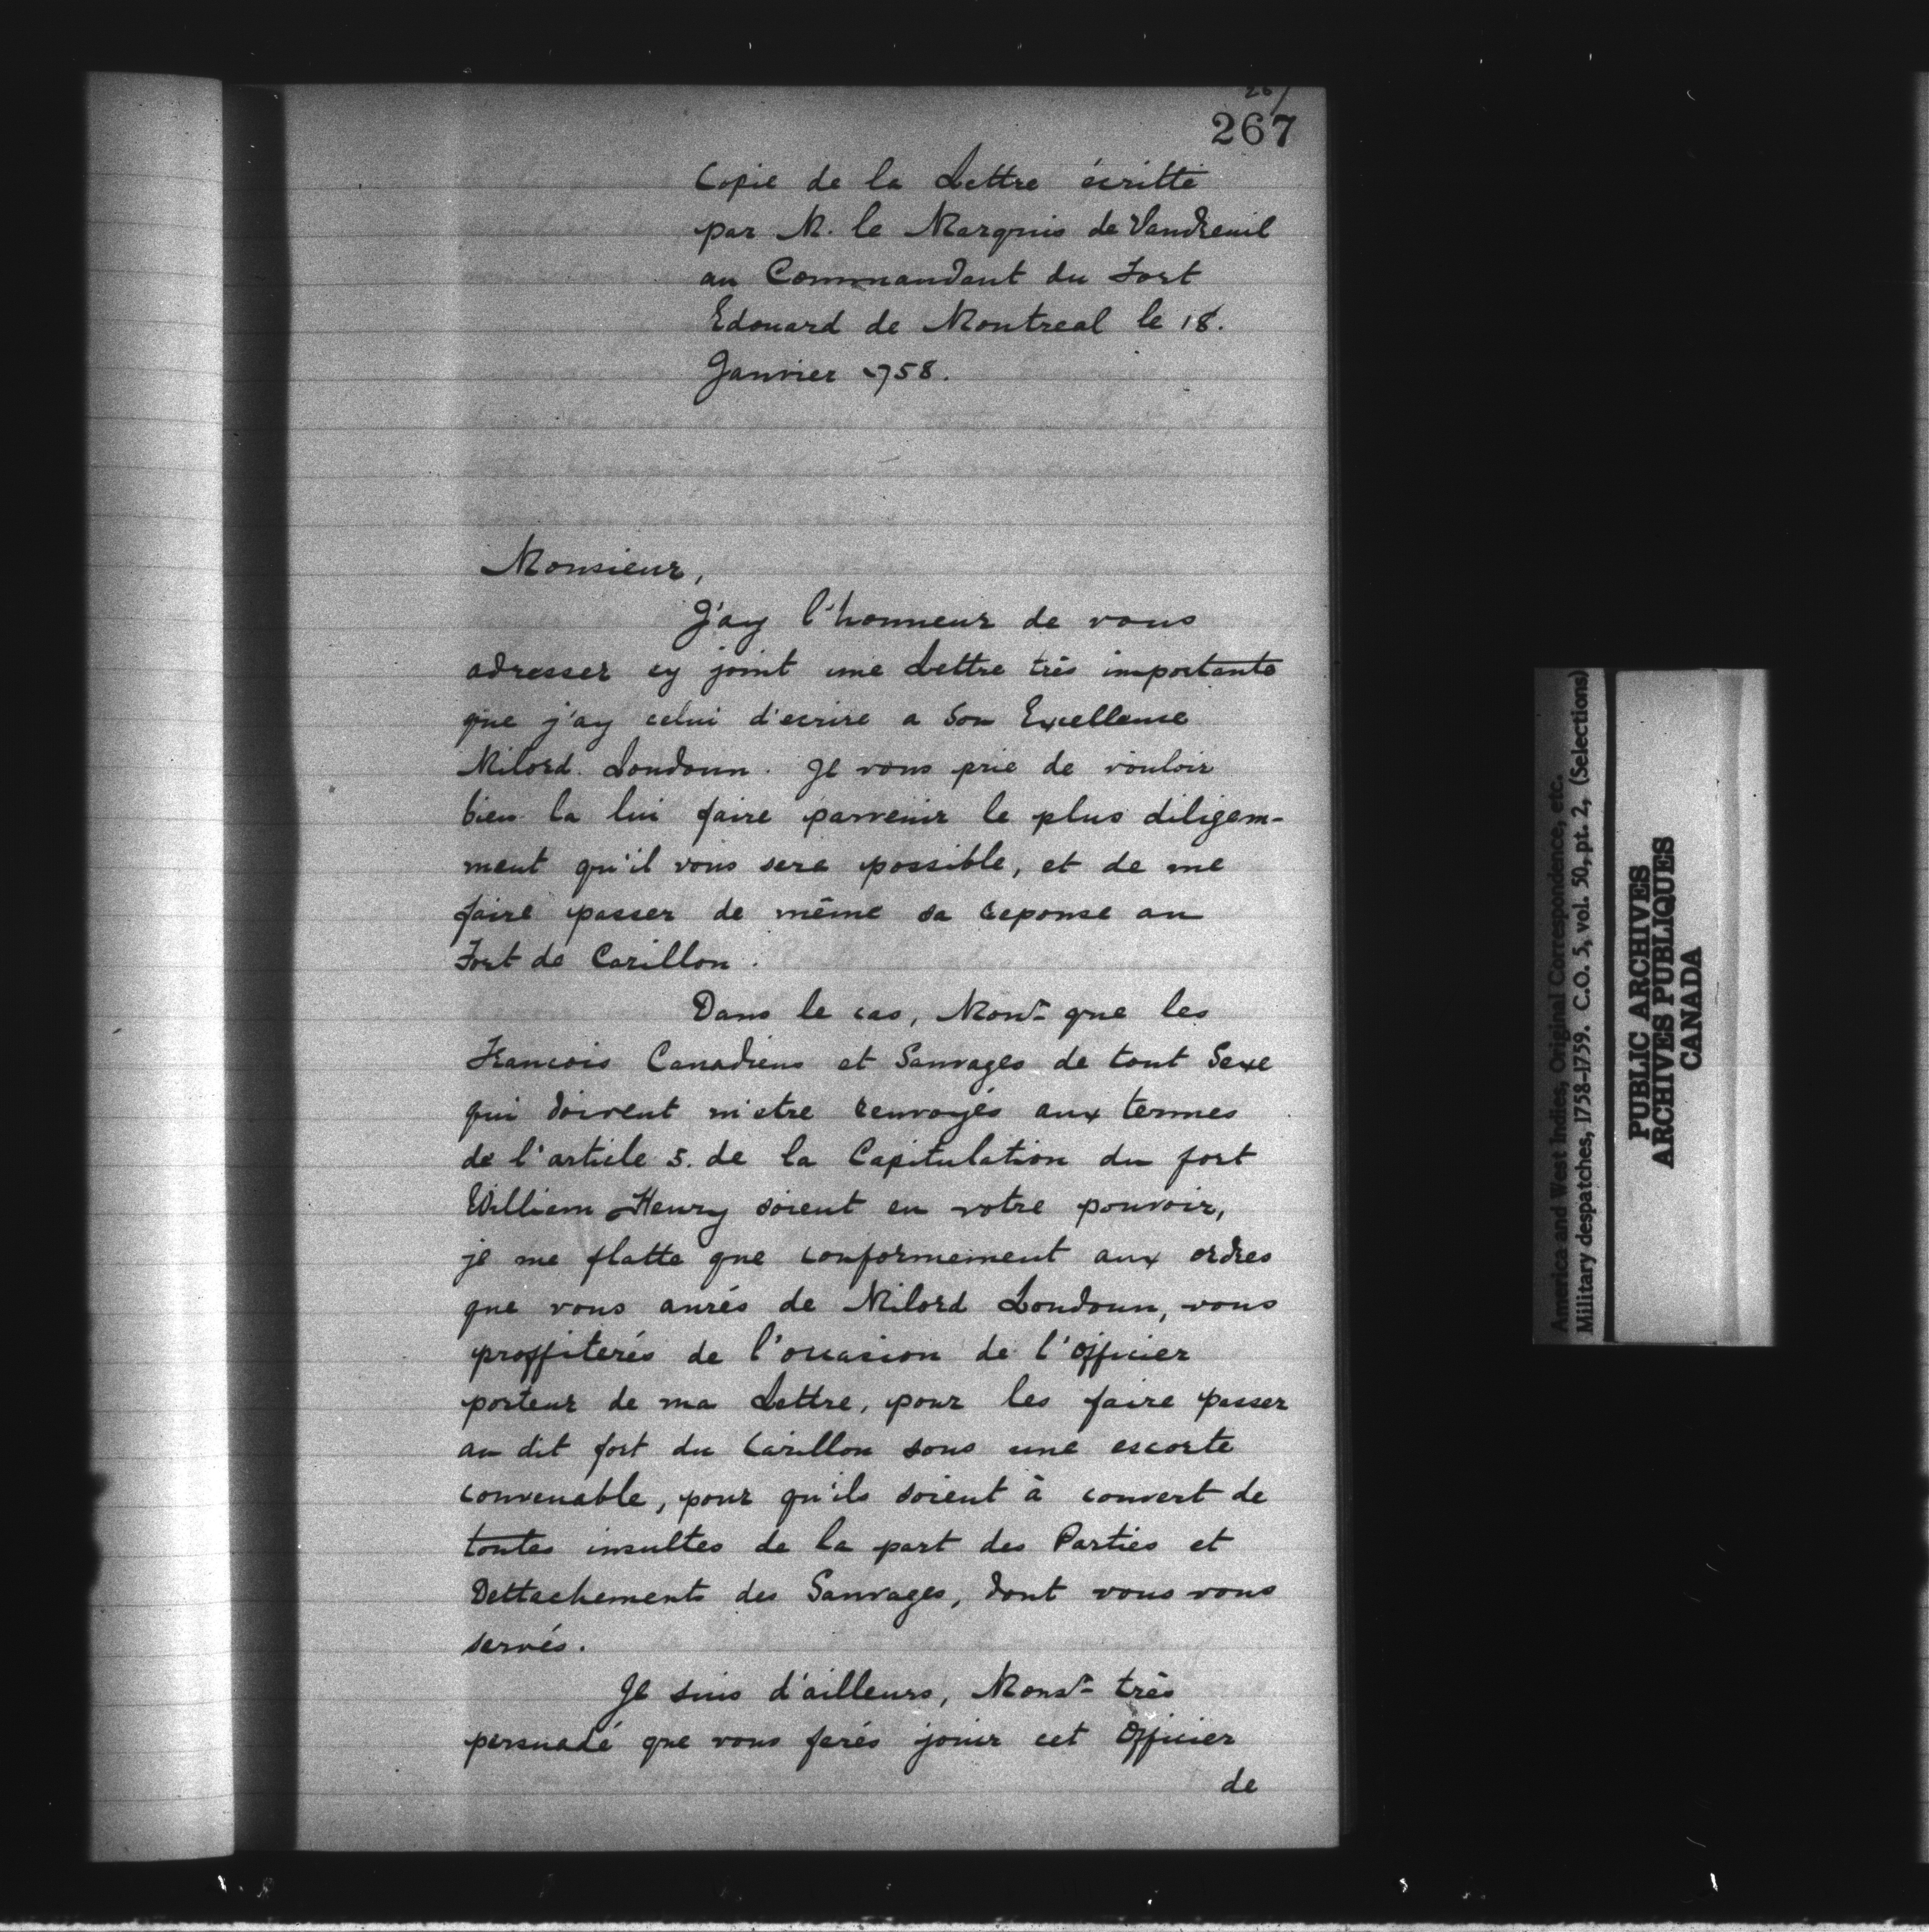 267
267
Copie de la Lettre écritte
par M. le Marquis de Vaudreuil
au Commandant du Fort
Edouard de Montreal le 18.
Janvier 758.
Monsieur,
J'ay l'honneur de vous
adresser cy joint une Lettre très importante
que j'ay celui d'ecrire a Son Excellence
Milord Loudoun. Je vous prie de vouloir
bien la lui faire parvenir le plus diligem-
ment qu'il vous sera possible, et de me
faire passer de même sa reponse au
Fort de Carillon.
Dans le cas, Monsr que les
Francois Canadiens et Sauvages de tout Sexe
qui doivent m'etre renvoyés aux termes
de l'article 5. de la Capitulation du fort
William Henry soient en votre pouvoir,
je me flatte que conformement aux ordres
que vous aurés de Milord Loudoun, vous
proffiterés de l'occasion de l'Officier
porteur de ma Lettre, pour les faire passer
au dit fort du Carillon sous une escorte
convenable, pour qu'ils soient à couvert de
toutes insultes de la part des Parties et
Dettachements des Sauvages, dont vous vous
servés.
Je suis d'ailleurs, Monsr très
persuadé que vous ferés jouir cet Officier
de
America and West Indies, Original Correspondence, etc.
Military despatches, 1758-1759. C.O. 5, vol. 50, pt. 2, (Selections)
PUBLIC ARCHIVES
ARCHIVES PUBLIQUES
CANADA